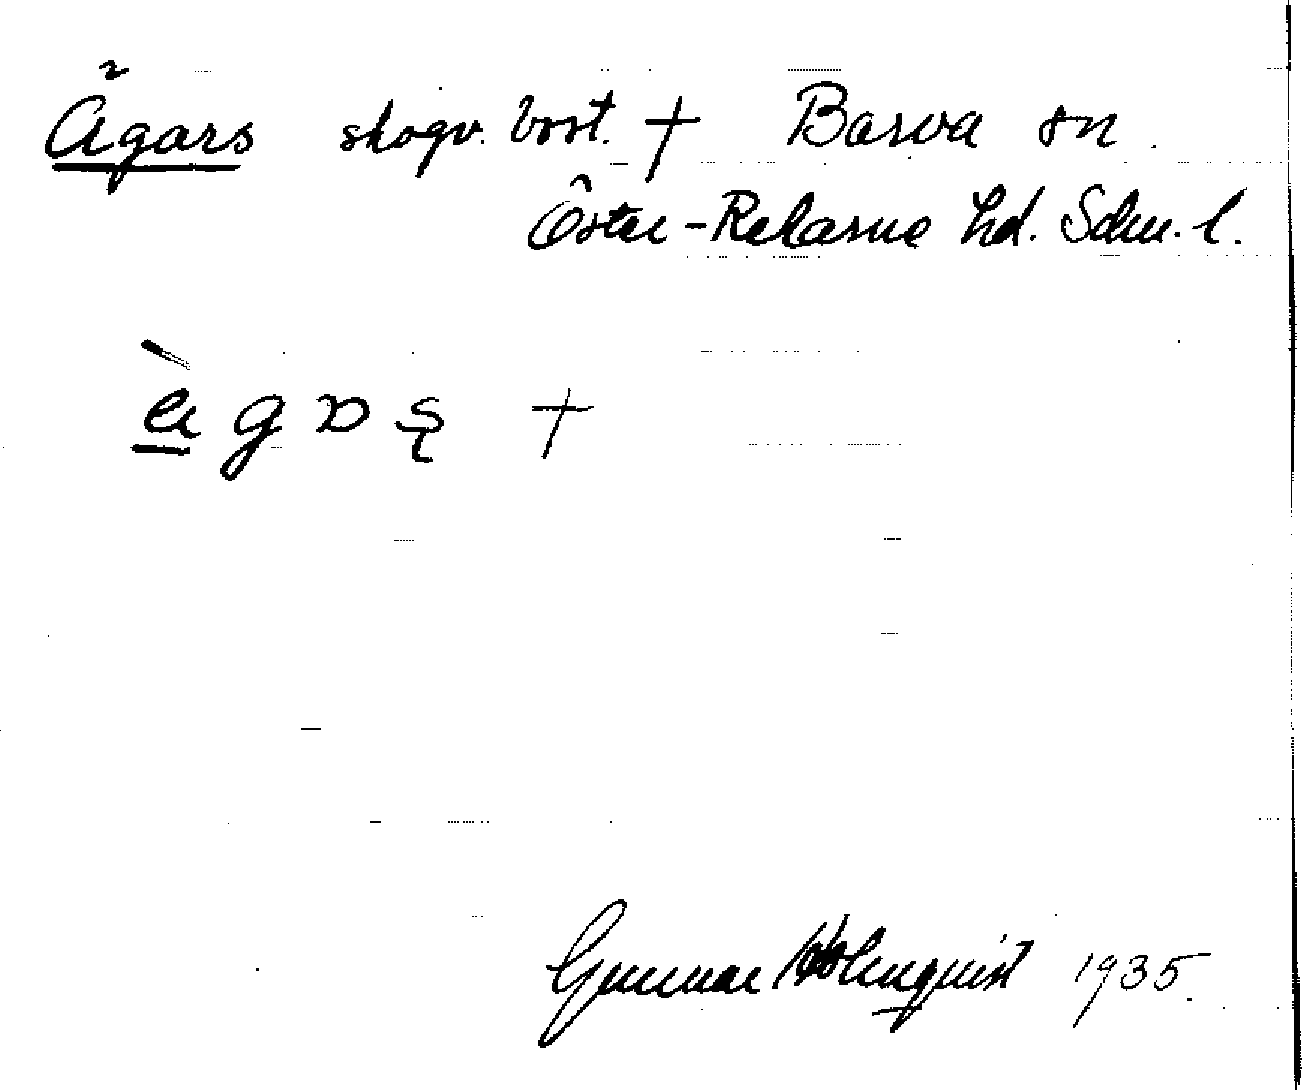 Ägars skogv. bost. † Barva sn
Öster-Rekarne hd. Sdm. l.
†
Gunnar Holmquist 1935.